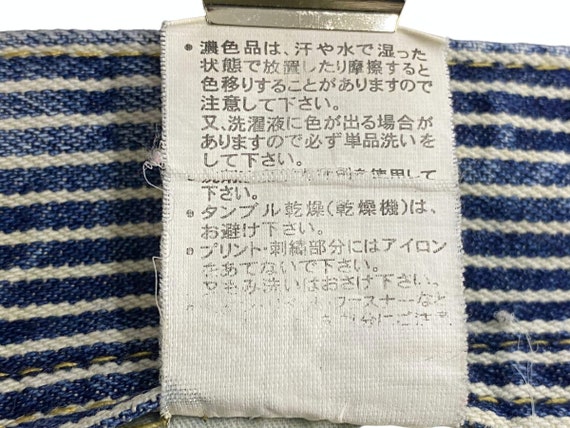 • 濃色品は、汗や水で湿った
状態で放置したり摩擦すると
色移りすることがありますので
注意して下さい。
又、洗濯液に色が出る場合が
ありますので必ず単品洗いを
して下さい。
を使用して
下さい。
• タンブル乾燥(乾燥機)は、
お避け下さい。
• プリント・刺繍部分にはアイロン
をあてないで下さい。
又もみ洗いはおさけ下さい。
ファスナーなど